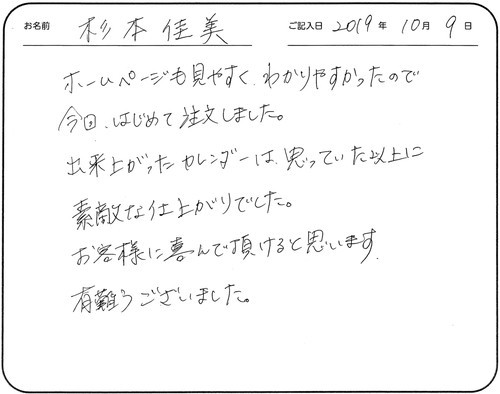 お名前 杉本佳美 ご記入日 2019年 10月 9日
ホームページも見やすく、わかりやすかったので
今回、はじめて注文しました。
出来上がったカレンダーは、思っていた以上に
素敵な仕上がりでした。
お客様に喜んで頂けると思います。
有難うございました。